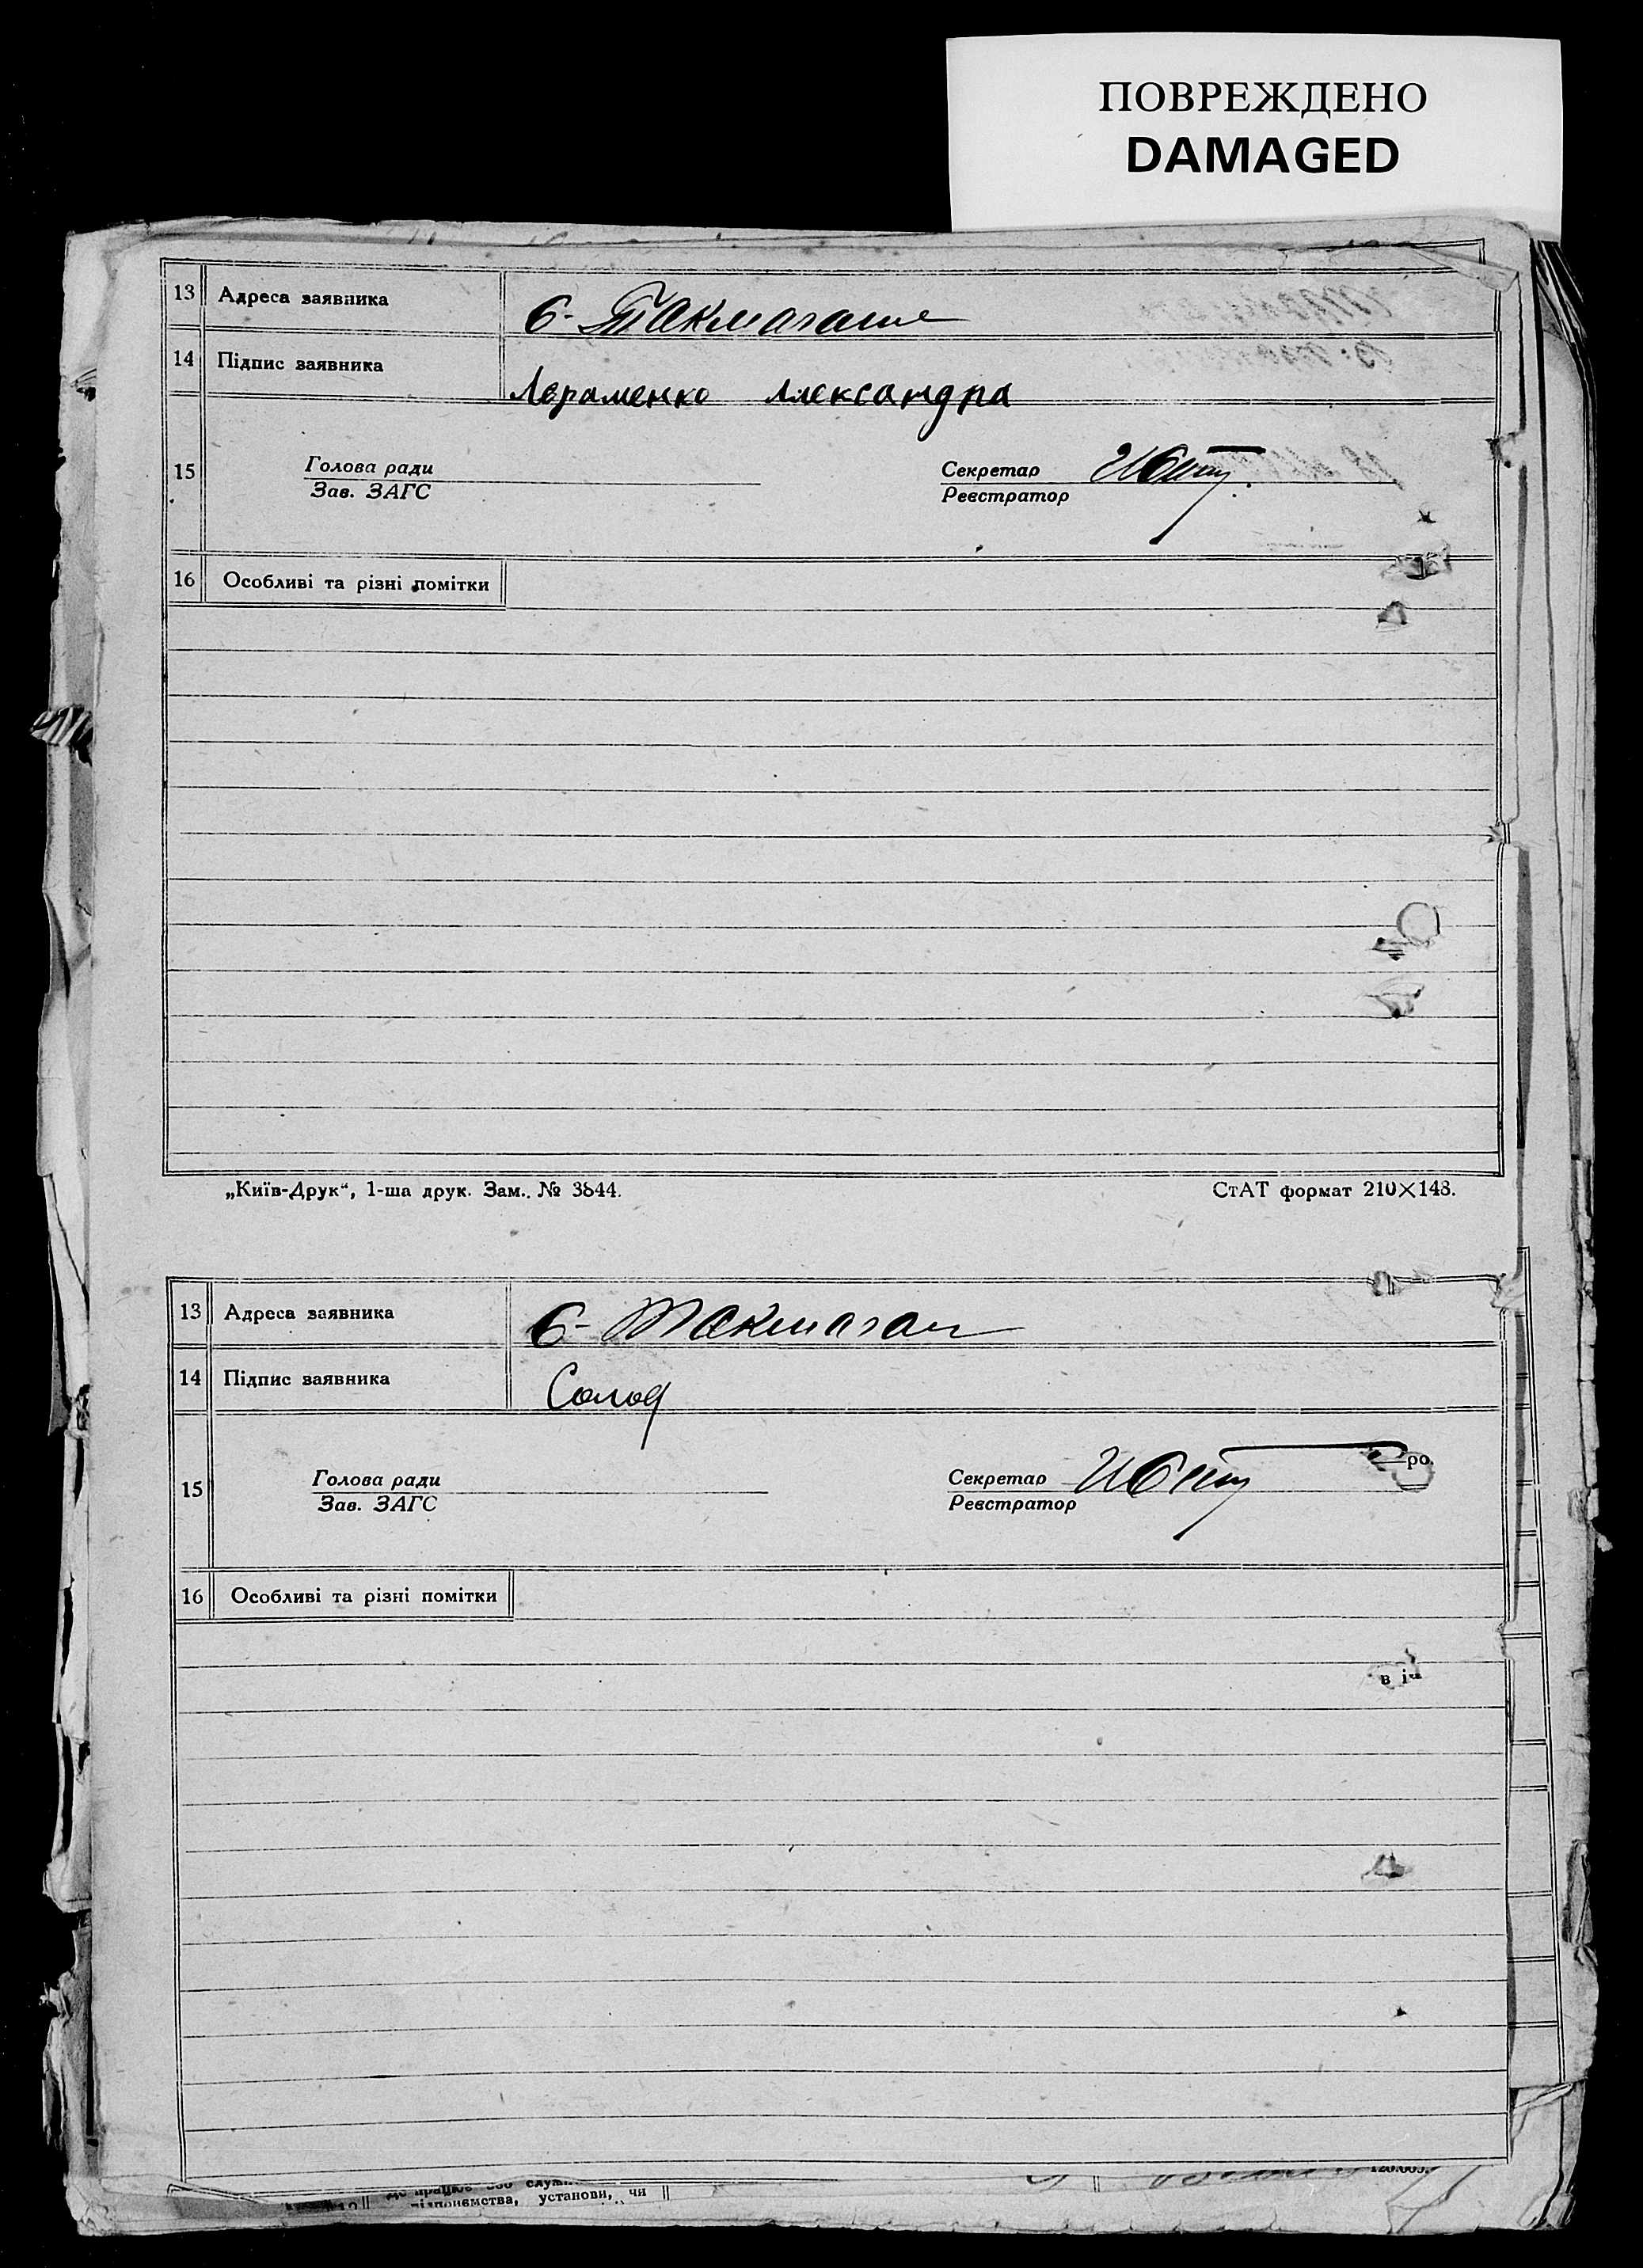 ПОВРЕЖДЕНО
DAMAGED
13 Адреса заявника
14 Підпис заявника Авраменко Александра
15 Голова ради Секретар
Зав. ЗАГС Реєстратор
16 Особливі та різні помітки
„Київ-Друк“, 1-ша друк. Зам. № 3844. СтАТ формат 210×148.
13 Адреса заявника
14 Підпис заявника Солод
ро.
15 Голова ради Секретар
Зав. ЗАГС Реєстратор
16 Особливі та різні помітки
в
установи, чи